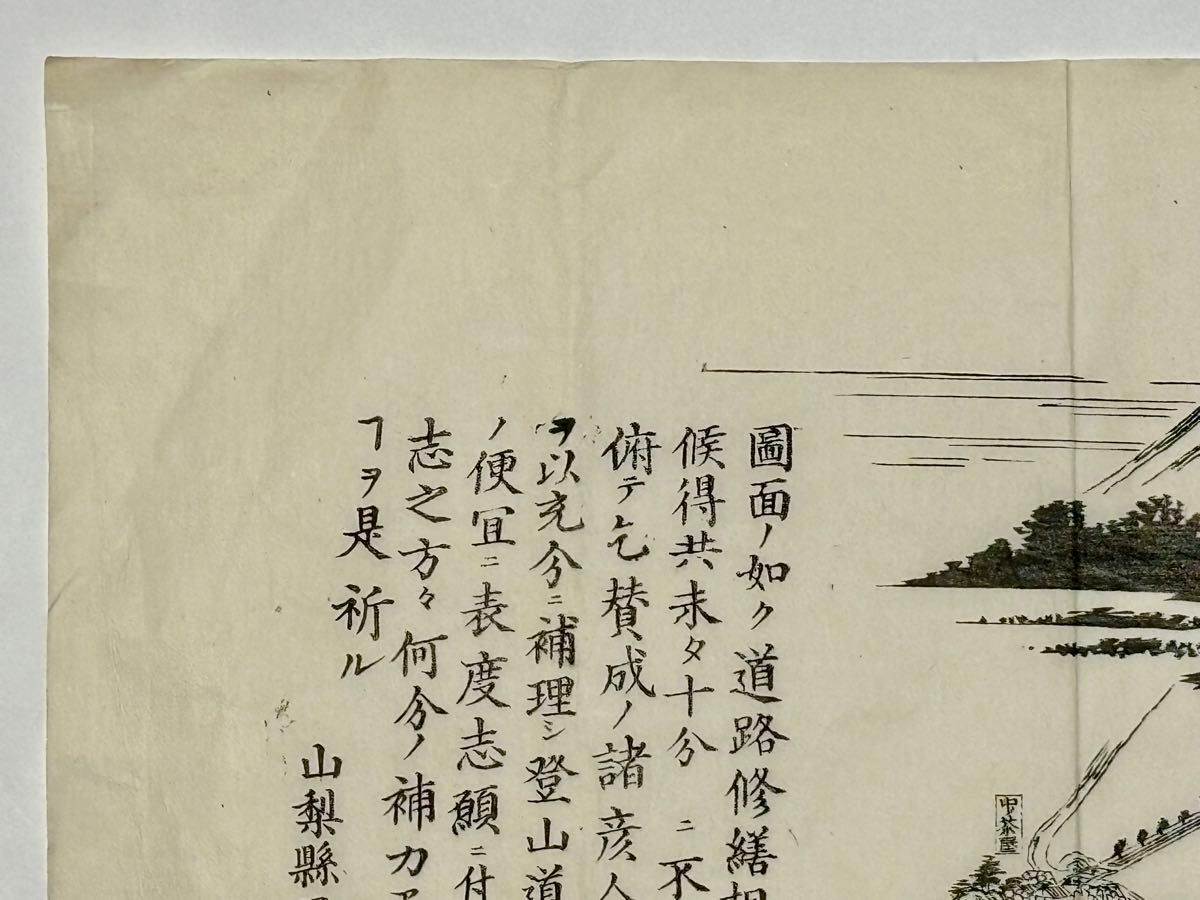 圖面ノ如ク道路修繕
候得共未タ十分ニ不
俯テ乞賛成ノ諸彦人
ヲ以充分ニ補理シ登山道
ノ便冝ニ表度志願ニ付
志之方々何分ノ補力ア
ヿヲ是祈ル
山梨縣
中茶屋